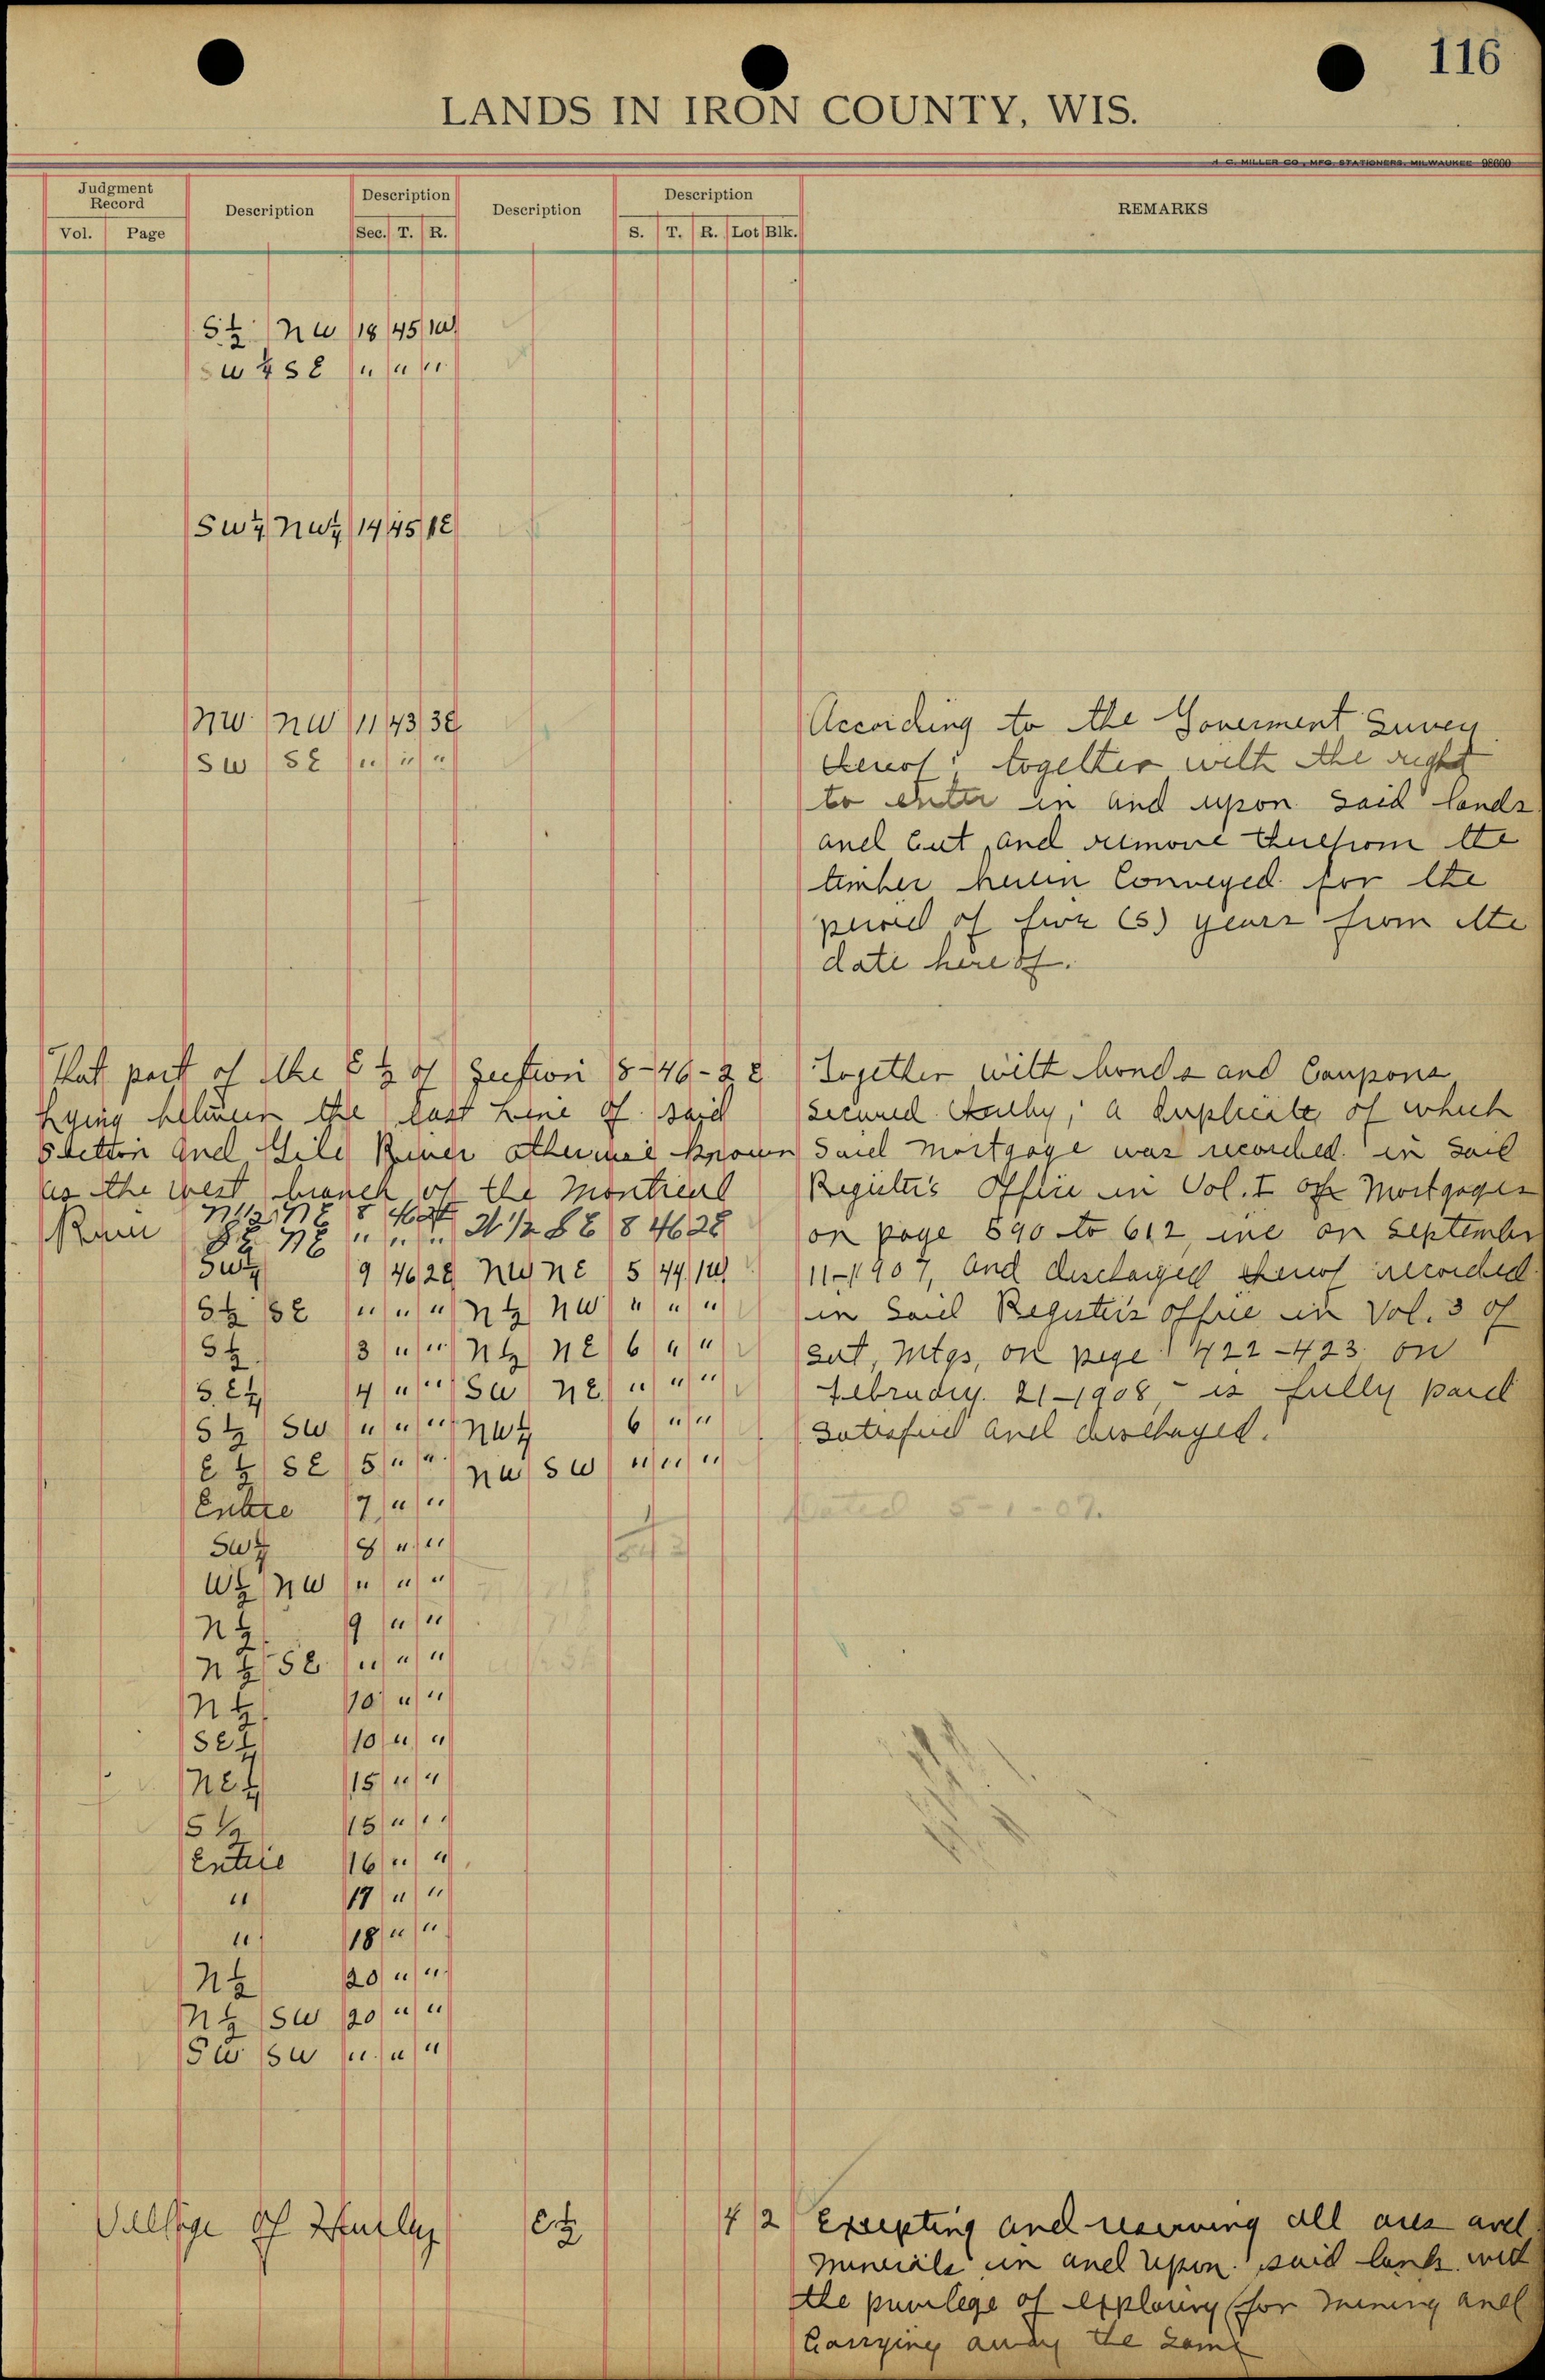 116
LANDS IN IRON COUNTY, WIS.
H. C. MILLER CO., MFG. STATIONERS, MILWAUKEE 98600
Judgment Record
Description
Description
Description
Description
REMARKS
Vol. Page
Sec. T. R.
S. T. R. Lot Blk.
S 1/2 NW 18 45 1W
SW 1/4 SE " " "
SW 1/4 NW 1/4 14 45 1E
NW NW 11 43 3E
SW SE " " "
According to the Goverment Survey
thereof; together with the right
to enter in and upon said lands
and cut, and remove therefrom the
timber herein Conveyed for the
period of five (5) years from the
date hereof.
That part of the E 1/2 of Section 18-46-2E
Lying between the East Line of said
Section and Gile River otherwise known
as the west branch of the Montreal
River
N 1/2 NE 8 46 2E
SE NE " " " N 1/2 SE 8 46 2E
SW 1/4 9 46 2E NW NE 5 44 1W
S 1/2 SE " " " N 1/2 NW " " "
S 1/2 3 " " N 1/2 NE 6 " "
S.E 1/4 4 " " SW NE " " "
S 1/2 SW " " " NW 1/4 6 " "
E 1/2 SE 5 " " NW SW " " "
Entire 7 " "
SW 1/4 8 " "
W 1/2 NW " " "
N 1/2 9 " "
N 1/2 SE " " "
N 1/2 10 " "
SE 1/4 10 " "
NE 1/4 15 " "
S 1/2 15 " "
Entire 16 " "
" 17 " "
" 18 " "
N 1/2 20 " "
N 1/2 SW 20 " "
SW SW " " "
Together with bonds and Coupons
secured thereby; a duplicate of which
said mortgage was recorded in said
Register's Office in Vol. I of Mortgages
on page 590 to 612, inc on September
11-1907, and discharged thereof recorded
in Said Register's office in Vol. 3 of
Sat, Mtgs, on page 422-423 on
February. 21-1908, - is fully paid
Satisfied and discharged.
Dated 5-1-07.
Village of Hurley E 1/2 4 2
Excepting and reserving all ores and
minerals in and upon said lands with
the privilege of exploring for mining and
Carrying away the same